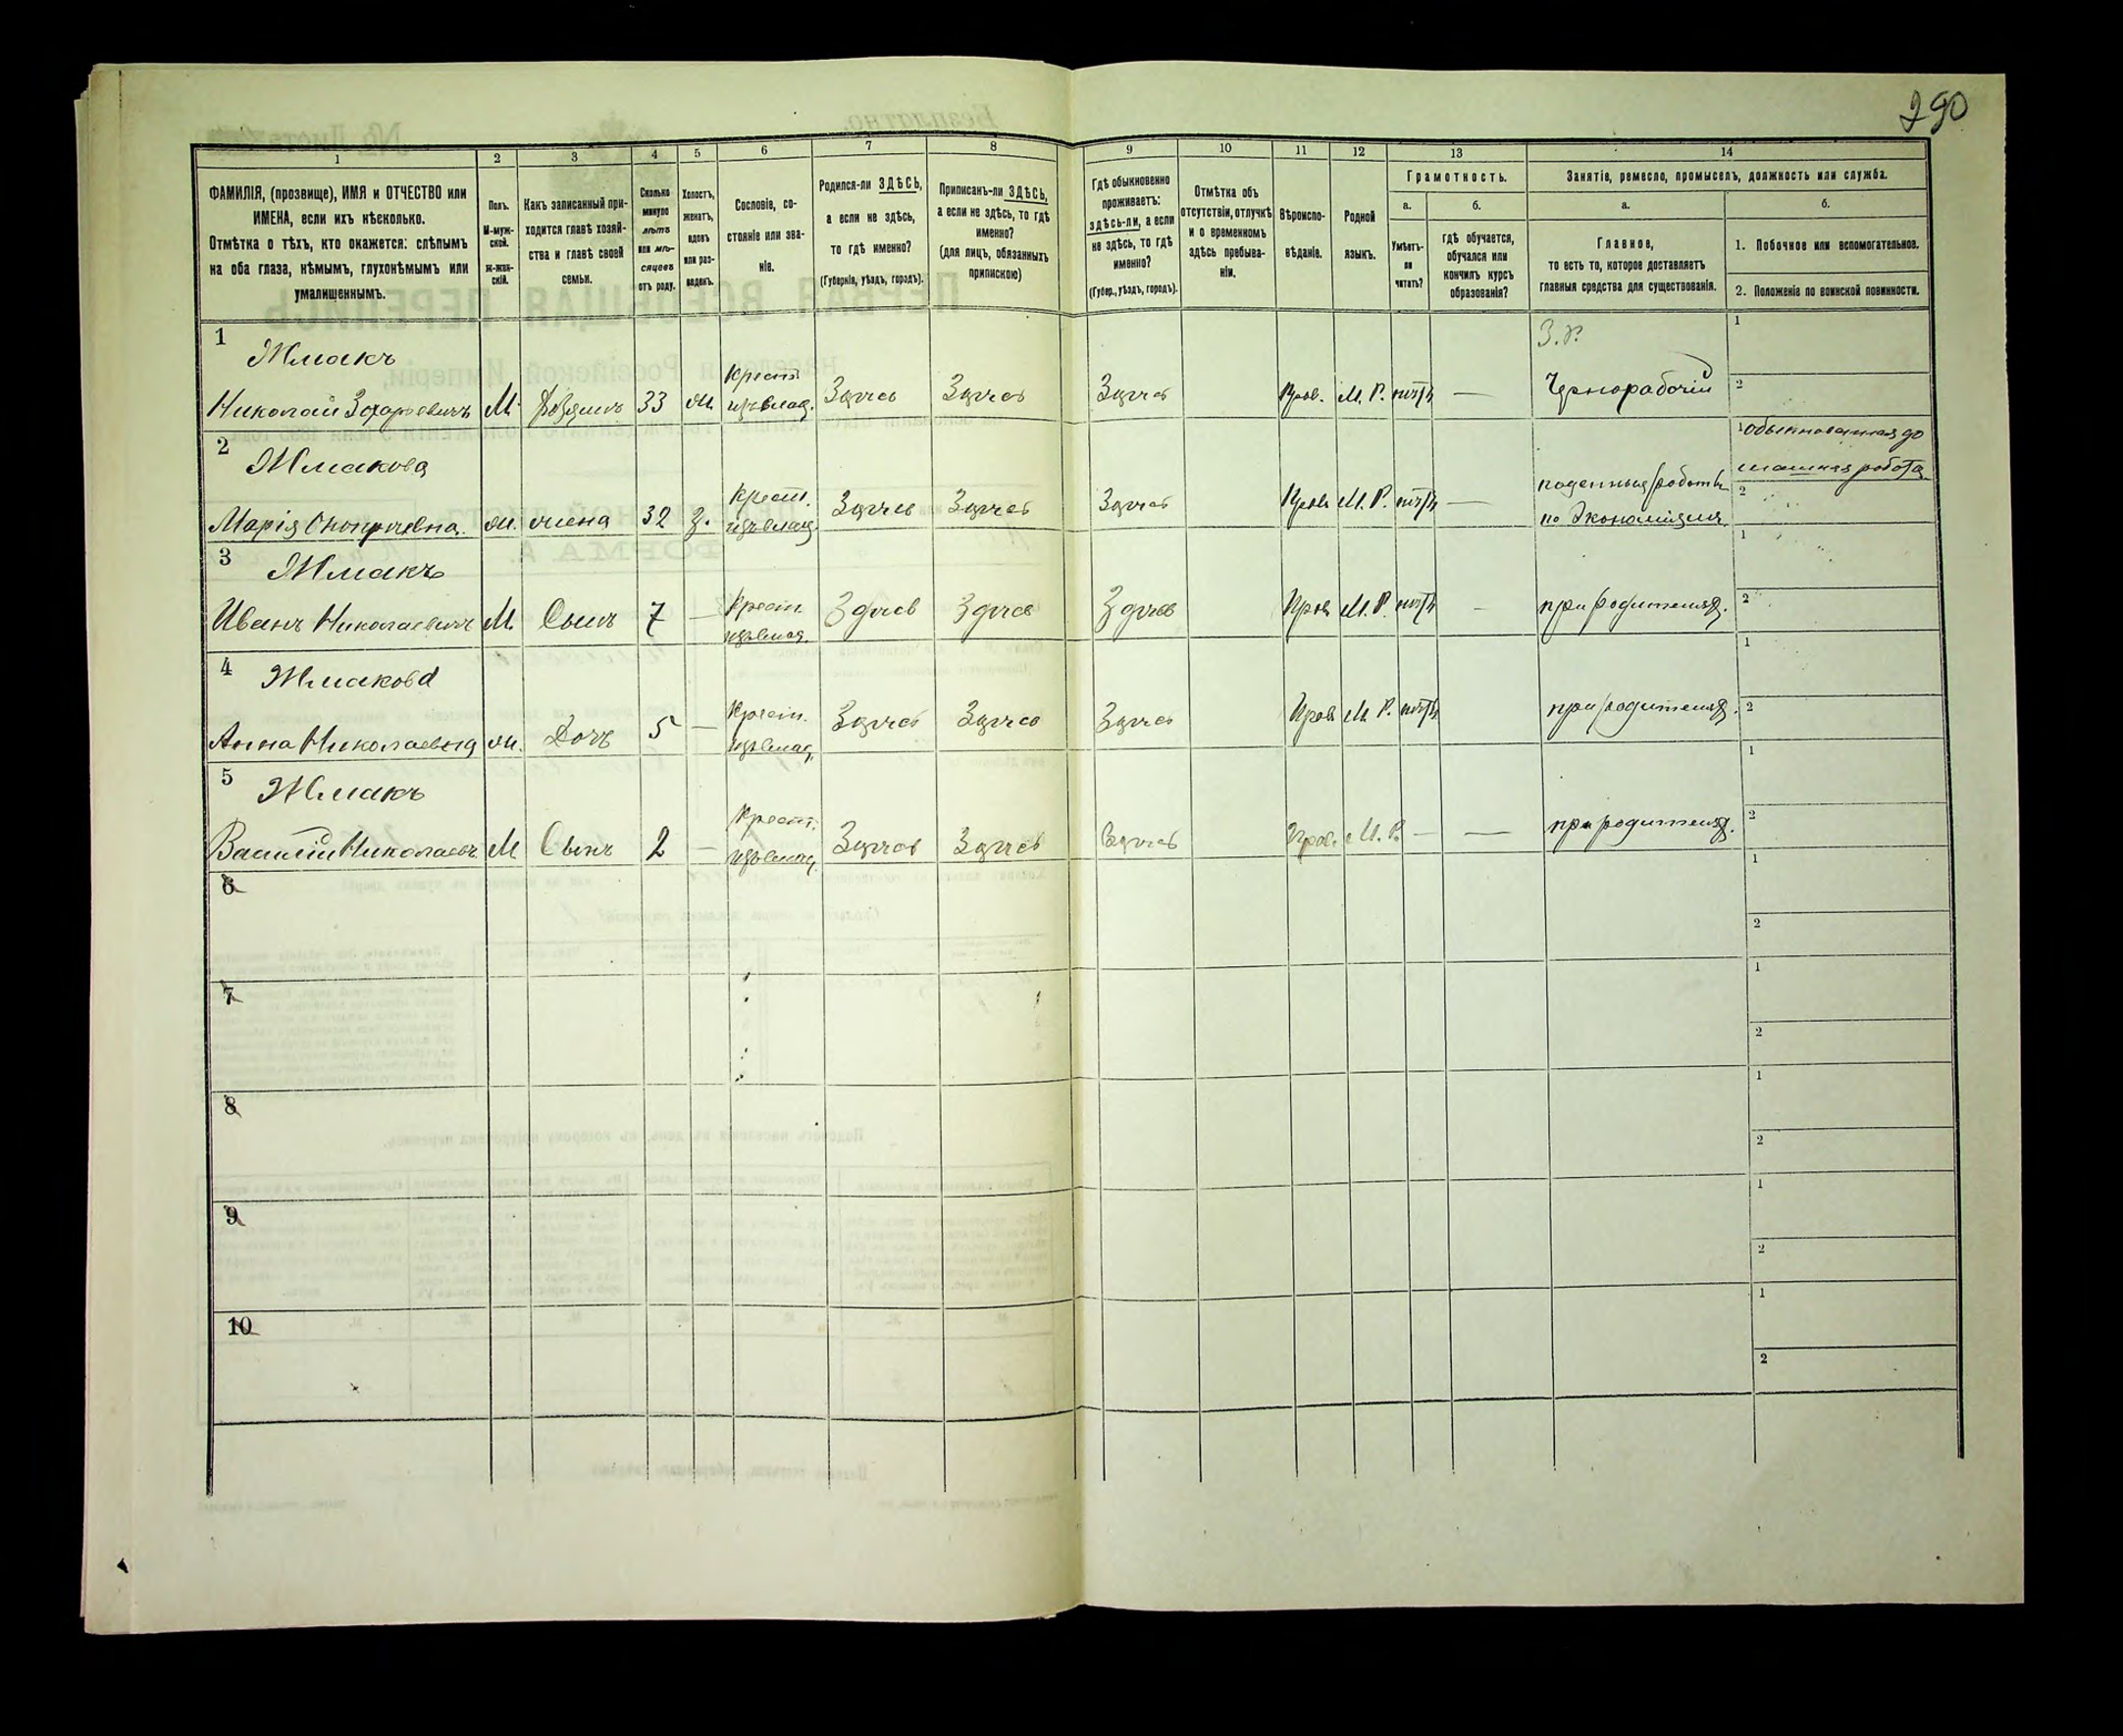 290
1
2
3
4
5
6
7
8
9
10
11
12
13
14
ФАМИЛІЯ, (прозвище), ИМЯ и ОТЧЕСТВО или
ИМЕНА, если ихъ нѣсколько.
Отмѣтка о тѣхъ, кто окажется: слѣпымъ
на оба глаза, нѣмымъ, глухонѣмымъ или
умалишеннымъ.
Полъ.
М-муж-
ской.
Ж-жен-
скій.
Какъ записанный при-
ходится главѣ хозяй-
ства и главѣ своей
семьи.
Сколько
минуло
лѣтъ
или мѣ-
сяцевъ
отъ роду.
Холостъ,
женатъ,
вдовъ
или раз-
веденъ.
Сословіе, со-
стояніе или зва-
ніе.
Родился-ли ЗДѢСЬ,
а если не здѣсь,
то гдѣ именно?
(Губернія, уѣздъ, городъ).
Приписанъ-ли ЗДѢСЬ,
а если не здѣсь, то гдѣ
именно?
(для лицъ, обязанныхъ
припискою)
Гдѣ обыкновенно
проживаетъ:
здѣсь-ли, а если
не здѣсь, то гдѣ
именно?
(Губер., уѣздъ, городъ).
Отмѣтка объ
отсутствіи, отлучкѣ
и о временномъ
здѣсь пребыва-
ніи.
Вѣроиспо-
вѣданіе.
Родной
языкъ.
Грамотность.
а.
Умѣетъ-
ли
читать?
б.
гдѣ обучается,
обучался или
кончилъ курсъ
образованія?
Занятіе, ремесло, промыселъ, должность или служба.
а.
Главное,
то есть то, которое доставляетъ
главныя средства для существованія.
б.
1. Побочное или вспомогательное.
2. Положеніе по воинской повинности.
1
Жмакъ
Николай Захарьевичъ М. Хозяинъ 33 ж. Крест. изъ влад. Здѣсь Здѣсь Здѣсь Прав. М. Р. нѣтъ —
З. Р.
Чернорабочій
1
2
2
Жмакова
Марія ж. жена 32 з. Крест. изъ влад. Здѣсь Здѣсь Здѣсь Прав М. Р. нѣтъ —
поденныя работы
по экономіямъ
1 обыкновенная до
машняя работа
2
3
Жмакъ
Иванъ Николаевичъ М. Сынъ 7 — Крест. изъ влад. Здѣсь Здѣсь Здѣсь Прав М. Р. нѣтъ — при родителяхъ.
1
2
4
Жмакова
Анна Николаевна ж. Дочь 5 — Крест. изъ влад. Здѣсь Здѣсь Здѣсь Прав М. Р. нѣтъ при родителяхъ.
1
2
5
Жмакъ
Василій Николаевъ М Сынъ 2 — Крест. изъ влад. Здѣсь Здѣсь Здѣсь Прав. М. Р. — — при родителяхъ.
1
2
6
1
2
7
1
2
8
1
2
9
1
2
10
1
2